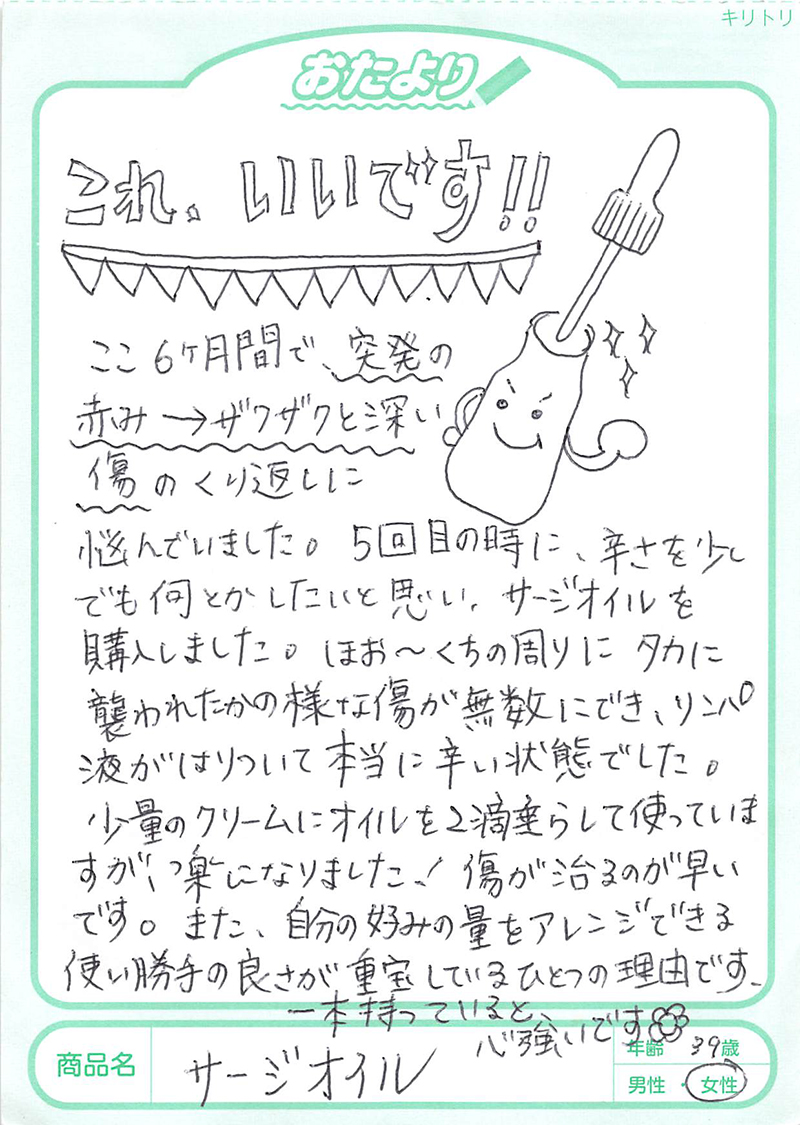 キリトリ
おたより
これ、いいです!!
ここ6ケ月間で、突発の
赤み→ザクザクと深い
傷のくり返しに
悩んでいました。5回目の時に、辛さを少し
でも何とかしたいと思い、サージオイルを
購入しました。ほお〜くちの周りにタカに
襲われたかの様な傷が無数にでき、リンパ
液がはりついて本当に辛い状態でした。
少量のクリームにオイルを2滴垂らして使っていま
すが、楽になりました！傷が治るのが早い
です。また、自分の好みの量をアレンジできる
使い勝手の良さが重宝しているひとつの理由です。
一本持っていると、
心強いです
商品名 サージオイル
年齢 39歳
男性・女性